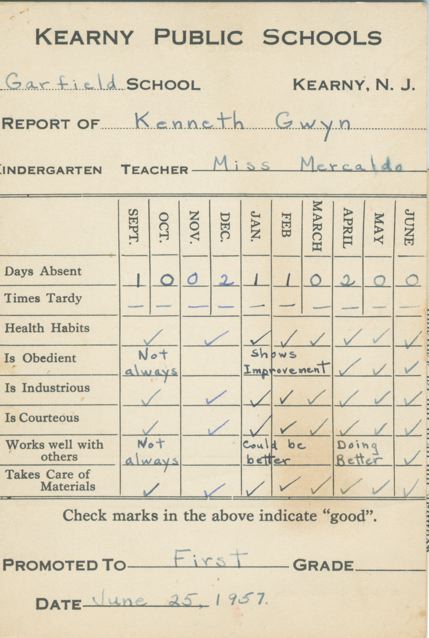 KEARNY PUBLIC SCHOOLS
Garfield SCHOOL KEARNY, N. J.
REPORT OF Kenneth Gwyn
INDERGARTEN TEACHER Miss Mercaldo
SEPT. OCT. NOV. DEC. JAN. FEB MARCH APRIL MAY JUNE
Days Absent 1 0 0 2 1 1 0 2 0 0
Times Tardy — — — — — — — — — —
Health Habits ✓ ✓ ✓ ✓ ✓ ✓ ✓ ✓
Is Obedient Not always Shows Improvement ✓ ✓ ✓
Is Industrious ✓ ✓ ✓ ✓ ✓ ✓ ✓ ✓
Is Courteous ✓ ✓ ✓ ✓ ✓ ✓ ✓ ✓
Works well with others Not always Could be better Doing Better ✓
Takes Care of Materials ✓ ✓ ✓ ✓ ✓ ✓ ✓ ✓
Check marks in the above indicate "good".
PROMOTED TO First GRADE
DATE June 25, 1957.